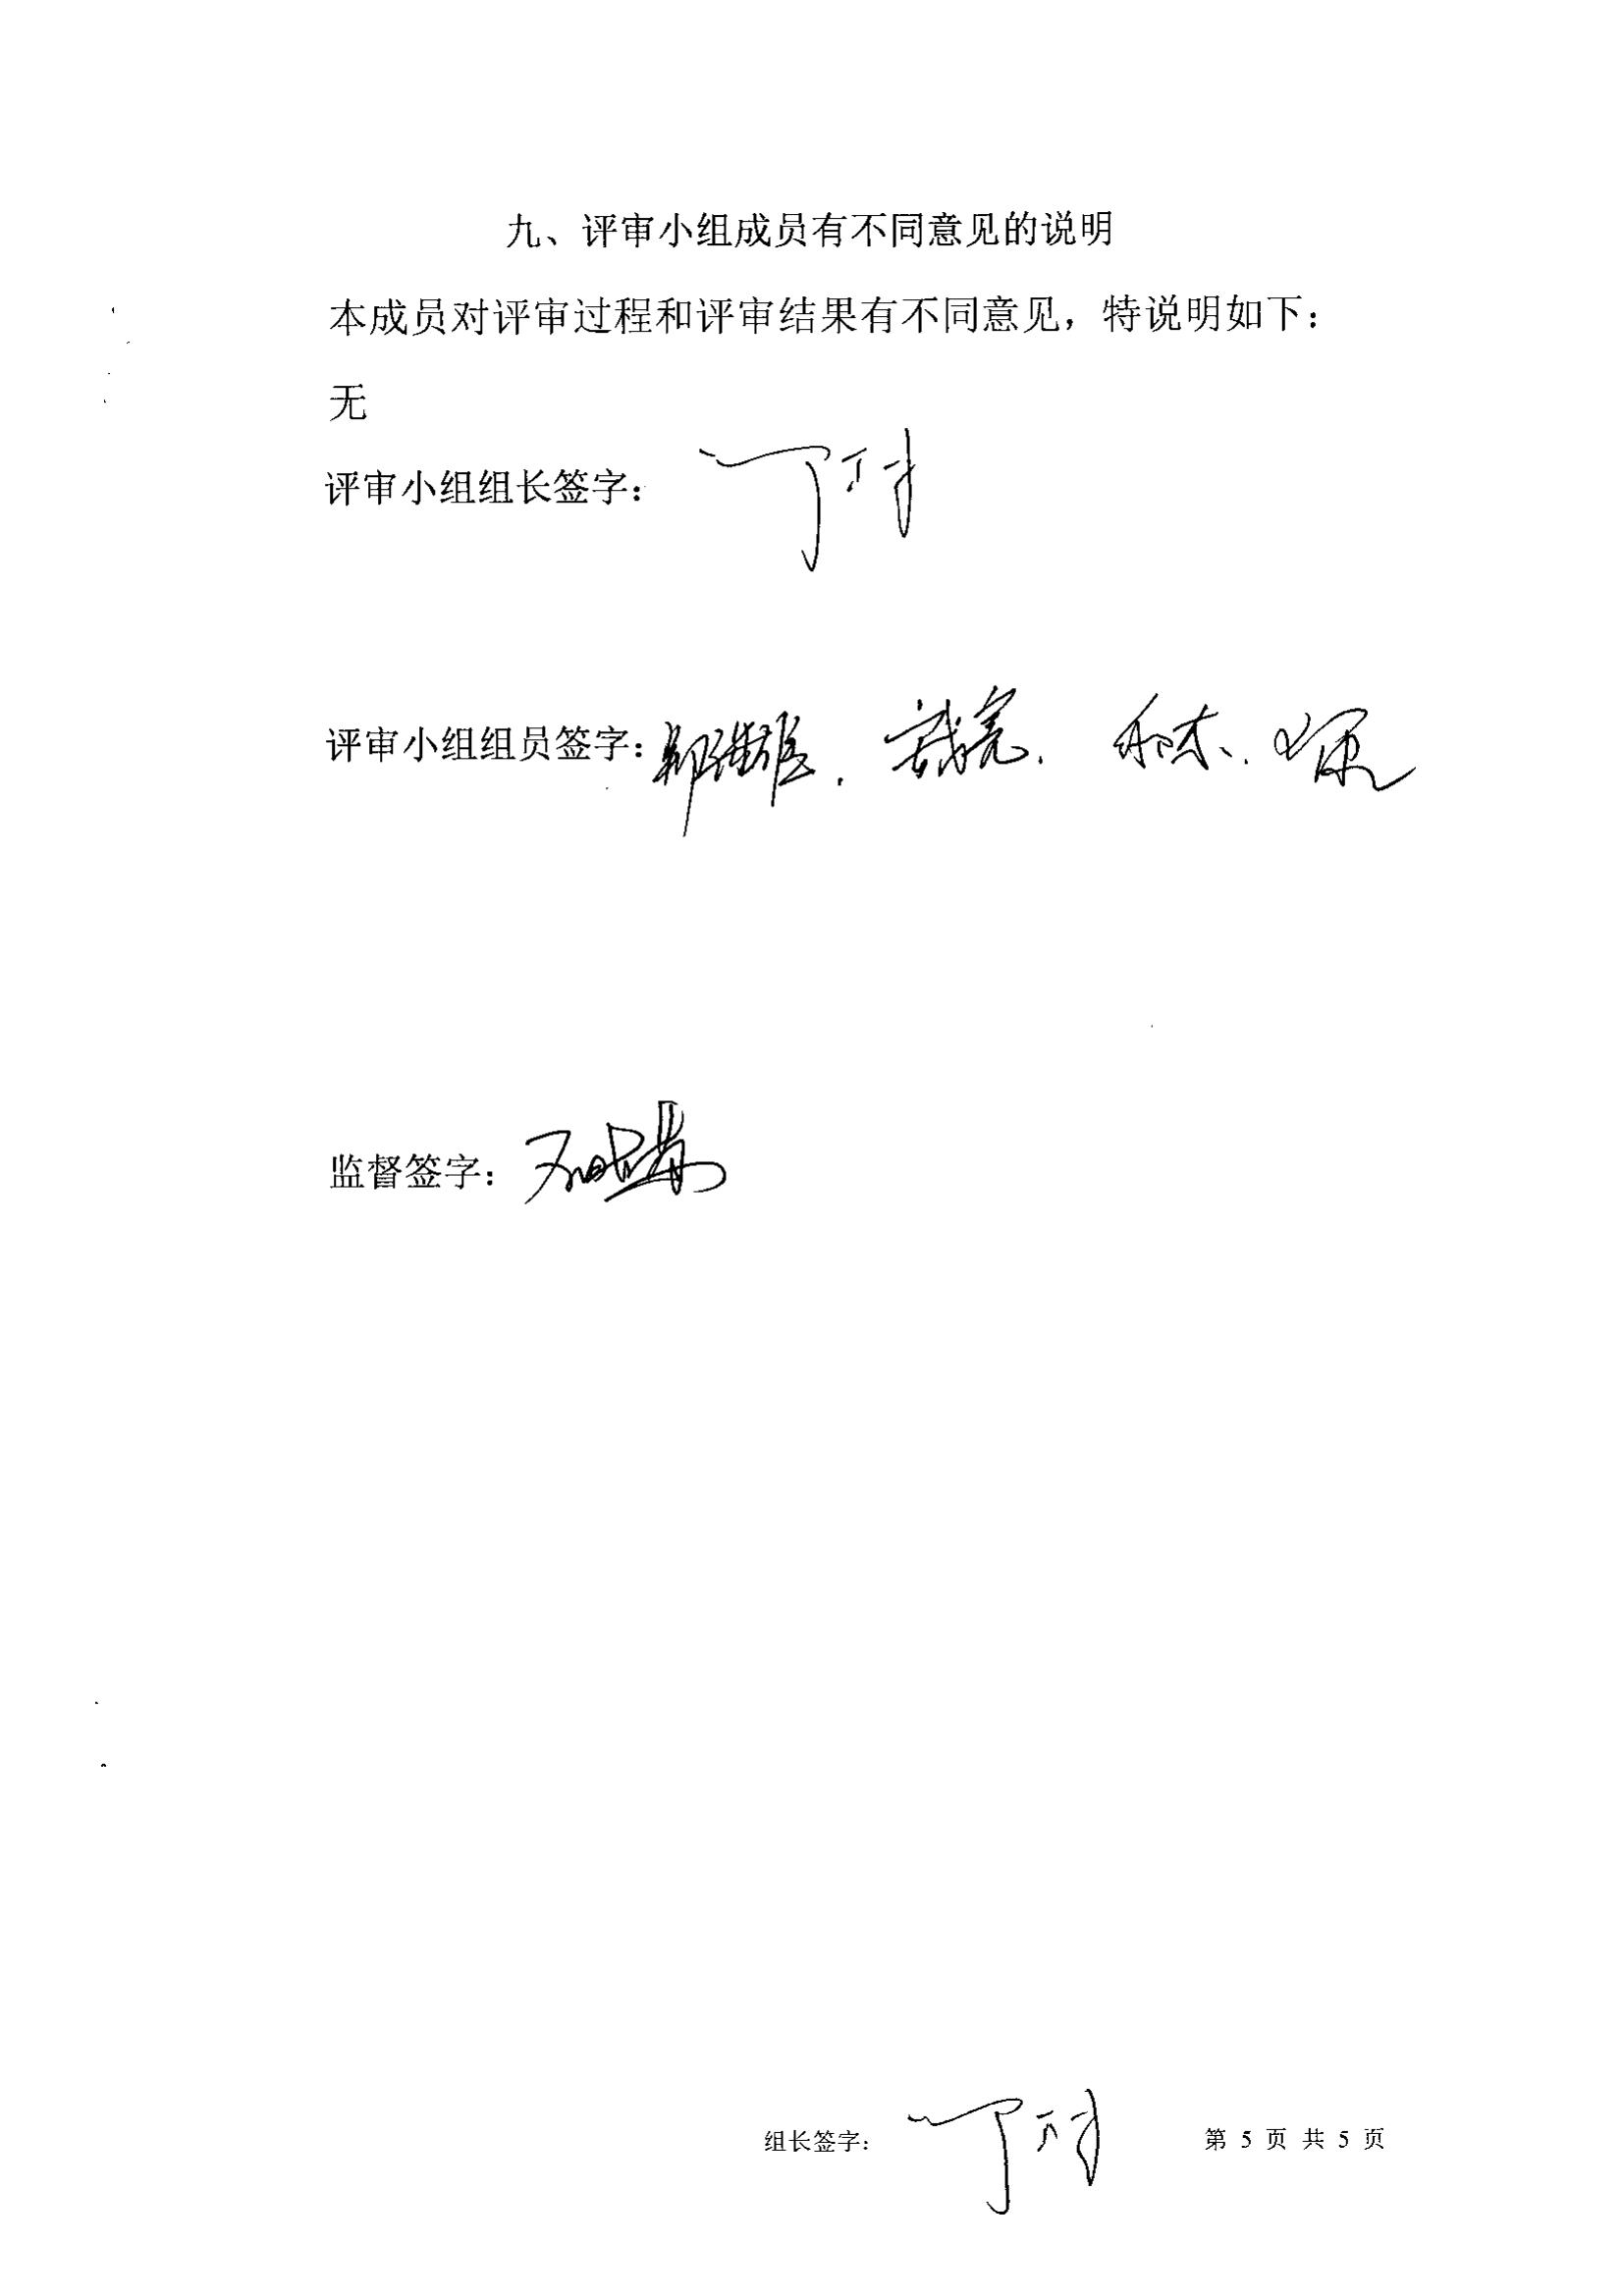 九、评审小组成员有不同意见的说明
本成员对评审过程和评审结果有不同意见，特说明如下：
无
评审小组组长签字：
评审小组组员签字：
监督签字：
组长签字： 第 5 页 共 5 页